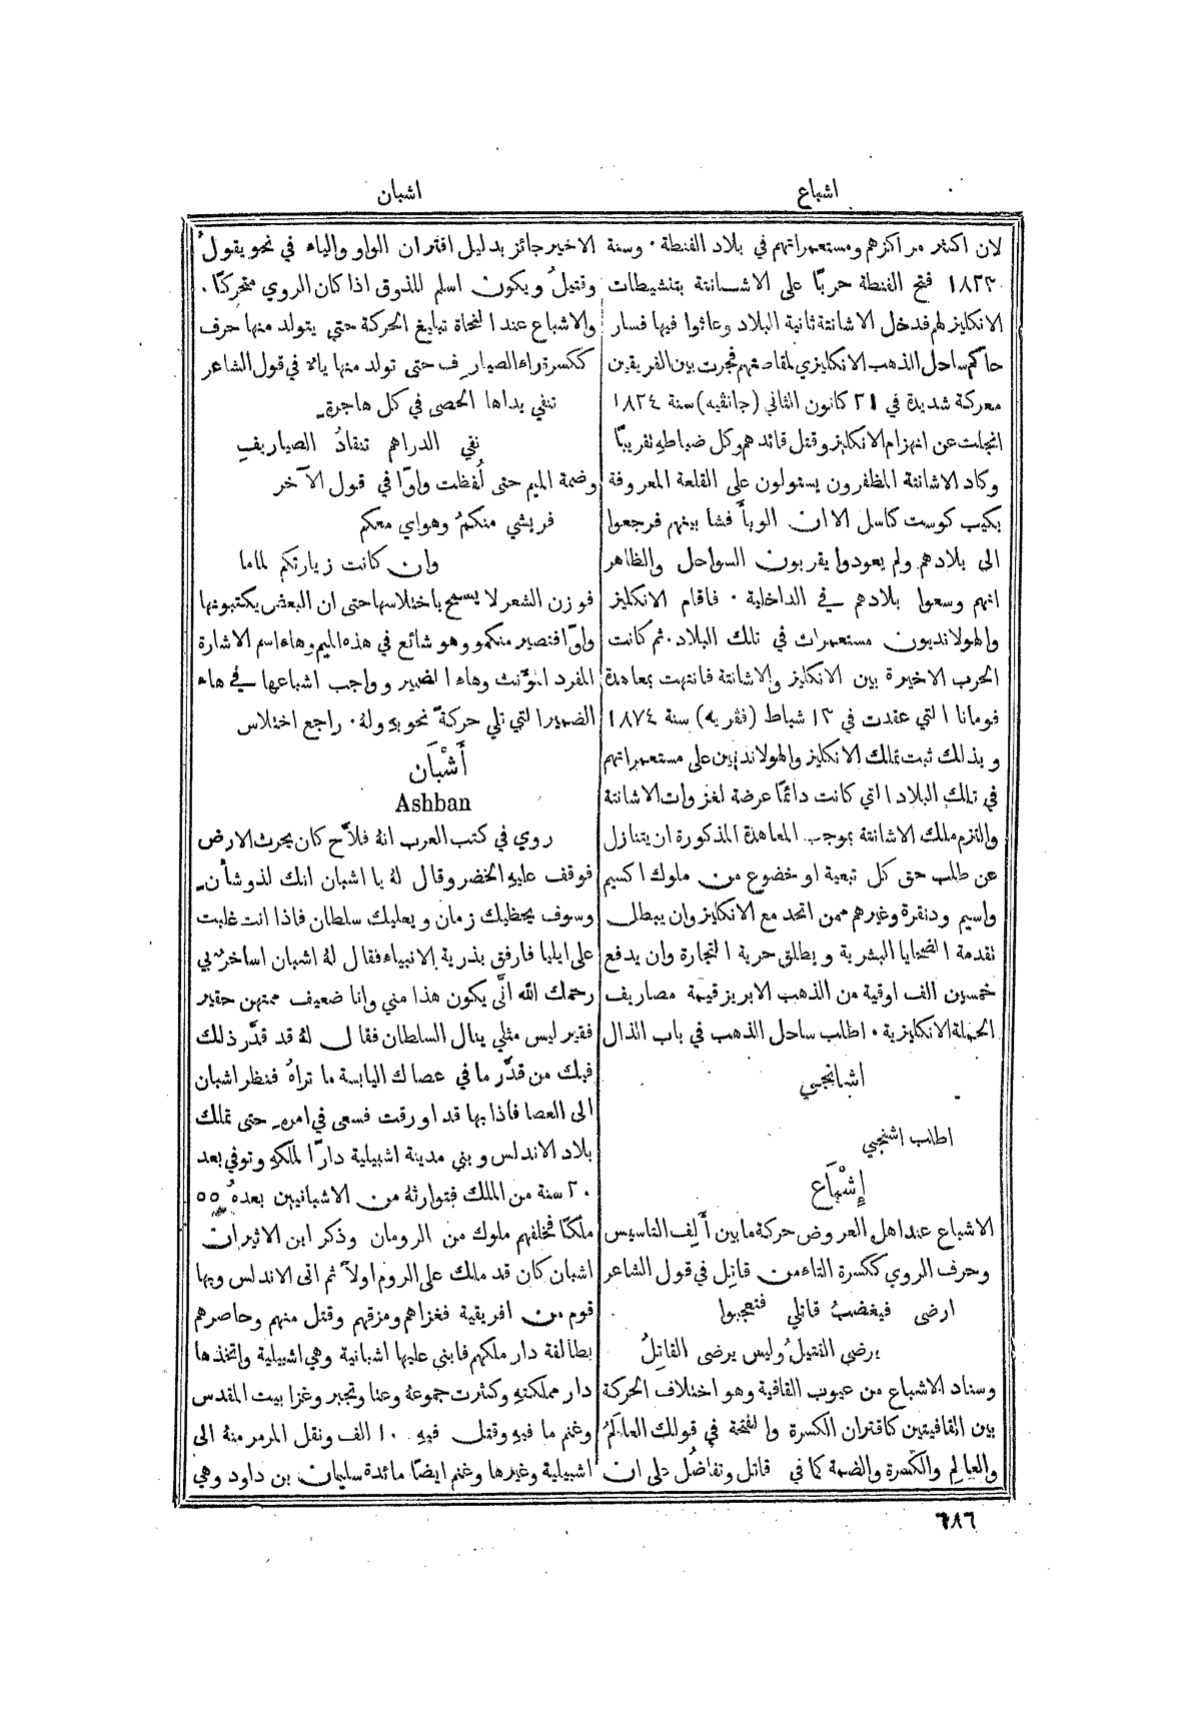 اشباع
اشبان
لان اكثر مراكزهم ومستعمراتهم في بلاد الفنطة · وسنة
١٨٢٣ فتح الفنطة حربًا على الاشانتة بتنشيطات
الانكليز لهم فدخل الاشانتة ثانية البلاد وعاثوا فيها فسار
حاكم ساحل الذهب الانكليزي لمقاصتهم فجرت بين الفريقين
معركة شديدة في ٢١ كانون الثاني (جانفيه) سنة ١٨٢٤
انجلت عن انهزام الانكليز وقتل قائدهم وكل ضباطهِ تقريبًا
وكاد الاشانتة المظفرون يستولون على القلعة المعروفة
بكيب كوست كاسل الا ان الوبأ فشا بينهم فرجعوا
الى بلادهم ولم يعودوا يقربون السواحل والظاهر
انهم وسعوا بلادهم في الداخلية · فاقام الانكليز
والهولانديون مستعمرات في تلك البلاد · ثم كانت
الحرب الاخيرة بين الانكليز والاشانتة فانتهت بمعاهدة
فومانا التي عقدت في ١٣ شباط (فڤريه) سنة ١٨٧٤
وبذلك ثبت تملك الانكليز والهولانديين على مستعمراتهم
في تلك البلاد التي كانت دائمًا عرضة لغزوات الاشانتة
والتزم ملك الاشانتة بموجب المعاهدة المذكورة ان يتنازل
عن طلب حق كل تبعية او خضوع من ملوك اكسيم
واسيم ودنقرة وغيرهم ممن اتحد مع الانكليز وان يبطل
تقدمة الضحايا البشرية ويطلق حرية التجارة وان يدفع
خمسين الف اوقية من الذهب الابريز قيمة مصاريف
الحملة الانكليزية · اطلب ساحل الذهب في باب الذال
اشبانجي
اطلب اشنجي
إِشْبَاع
الاشباع عند اهل العروض حركة ما بين أَلِف التاسيس
وحرف الروي ككسرة التاء من قاتِل في قول الشاعر
ارضى فيغضبُ قاتلي فتعجبوا
يرضى القتيلُ وليس يرضى القاتِلُ
وسناد الاشباع من عيوب القافية وهو اختلاف الحركة
بين القافيتين كاقتران الكسرة والفتحة في قولك العالَمُ
والعالِم والكسرة والضمة كما في قاتل وتفاضُل على ان
الاخير جائز بدليل اقتران الواو والياء في نحو يقولُ
وقتيلُ ويكون اسلم للذوق اذا كان الروي متحركًا .
والاشباع عند النحاة تبليغ الحركة حتى يتولد منها حرف
ككسرة راء الصيارِف حتى تولد منها ياءٌ في قول الشاعر
تنفي يداها الحصى في كل هاجرة
نفي الدراهم تنقادُ الصياريفِ
وضمة الميم حتى لُفظت واوًا في قول الآخر
فريشي منكمُ وهواي معكم
وان كانت زيارتكم لماما
فوزن الشعر لا يسمح باختلاسها حتى ان البعض يكتبونها
واوًا فتصير منكمو وهو شائع في هذه الميم وهاء اسم الاشارة
المفرد المؤنث وهاء الضمير وواجب اشباعها في هاء
الضمير التي تلي حركةً نحو بهِ ولهُ · راجع اختلاس
أَشْبَان
Ashban
روي في كتب العرب انهُ فلاَّح كان يحرث الارض
فوقف عليهِ الخضر وقال لهُ يا اشبان انك لذو شأن
وسوف يحظيك زمان ويعليك سلطان فاذا انت غلبت
على ايليا فارفق بذرية الانبياء فقال لهُ اشبان اساخرٌ بي
رحمك الله انَّى يكون هذا مني وانا ضعيف ممتهن حقير
فقير ليس مثلي ينال السلطان فقال لهُ قد قدَّر ذلك
فيك من قدَّر ما في عصاك اليابسة ما تراهُ فنظر اشبان
الى العصا فاذا بها قد اورقت فسعى في امرهِ حتى تملك
بلاد الاندلس وبنى مدينة اشبيلية دارًا لملكهِ وتوفي بعد
٢٠ سنة من الملك فتوارثهُ من الاشبانيين بعدهُ ٥٥
ملكًا فخلفهم ملوك من الرومان وذكر ابن الاثير ان
اشبان كان قد ملك على الروم اولاً ثم اتى الاندلس وبها
قوم من افريقية فغزاهم ومزقهم وقتل منهم وحاصرهم
بطالقة دار ملكهم فابنى عليها اشبانية وهي اشبيلية واتخذها
دار مملكتهِ وكثرت جموعهُ وعتا وتجبر وغزا بيت المقدس
وغنم ما فيهِ وقتل فيهِ ١٠٠ الف ونقل المرمر منهُ الى
اشبيلية وغيرها وغنم ايضًا مائدة سليمان بن داود وهي
٦٨٦